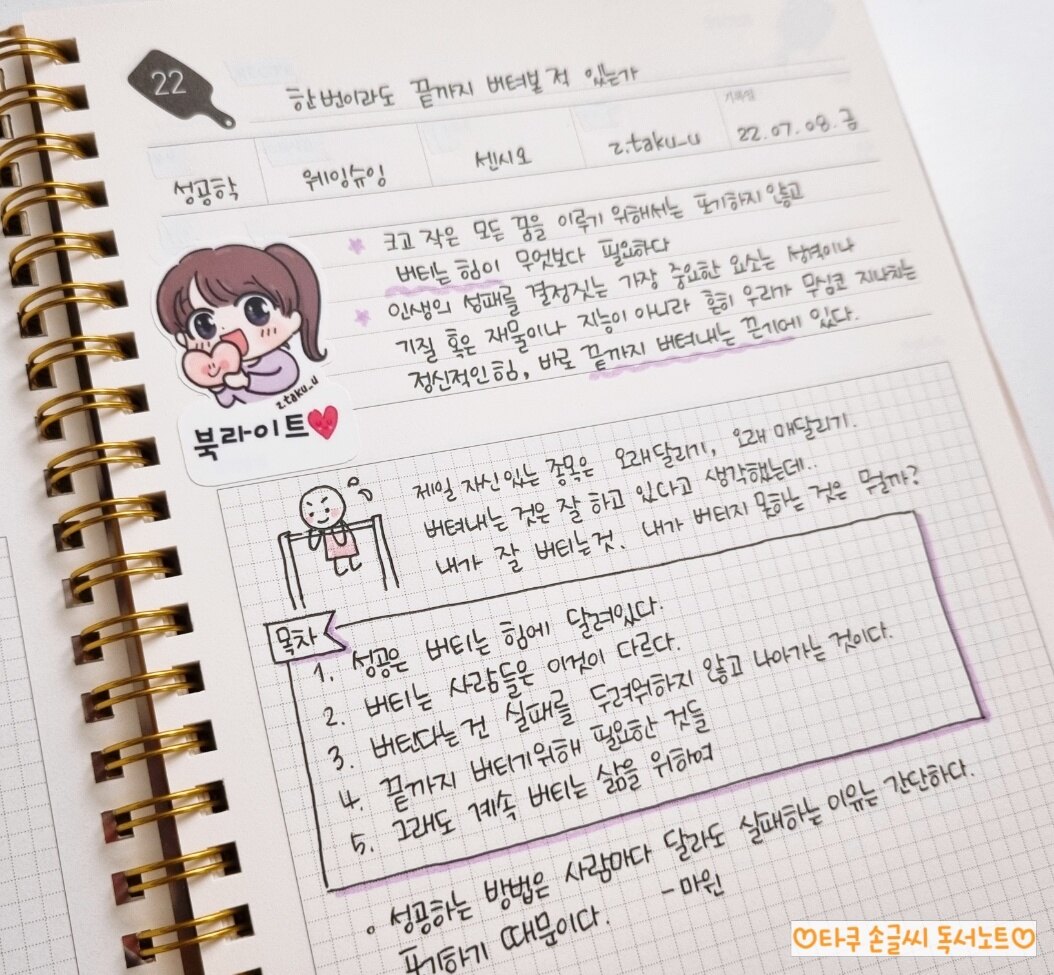 22
한번이라도 끝까지 버텨본 적 있는가
성공학 웨이슈잉 센시오 z.taku_u 22.07.08.금
크고 작은 모든 꿈을 이루기 위해서는 포기하지 않고
버티는 힘이 무엇보다 필요하다
인생의 성패를 결정짓는 가장 중요한 요소는 성격이나
기질 혹은 재물이나 지능이 아니라 흔히 우리가 무심코 지나치는
정신적인 힘, 바로 끝까지 버텨내는 끈기에 있다.
z.taku_u
북라이트
제일 자신있는 종목은 오래달리기, 오래 매달리기.
버텨내는 것은 잘 하고 있다고 생각했는데..
내가 잘 버티는것. 내가 버티지 못하는 것은 뭘까?
목차
1. 성공은 버티는 힘에 달려있다.
2. 버티는 사람들은 이것이 다르다.
3. 버틴다는건 실패를 두려워하지 않고 나아가는 것이다.
4. 끝까지 버티기위해 필요한 것들
5. 그래도 계속 버티는 삶을 위하여
◦ 성공하는 방법은 사람마다 달라도 실패하는 이유는 간단하다.
포기하기 때문이다. -마윈
♡타쿠 손글씨 독서노트♡